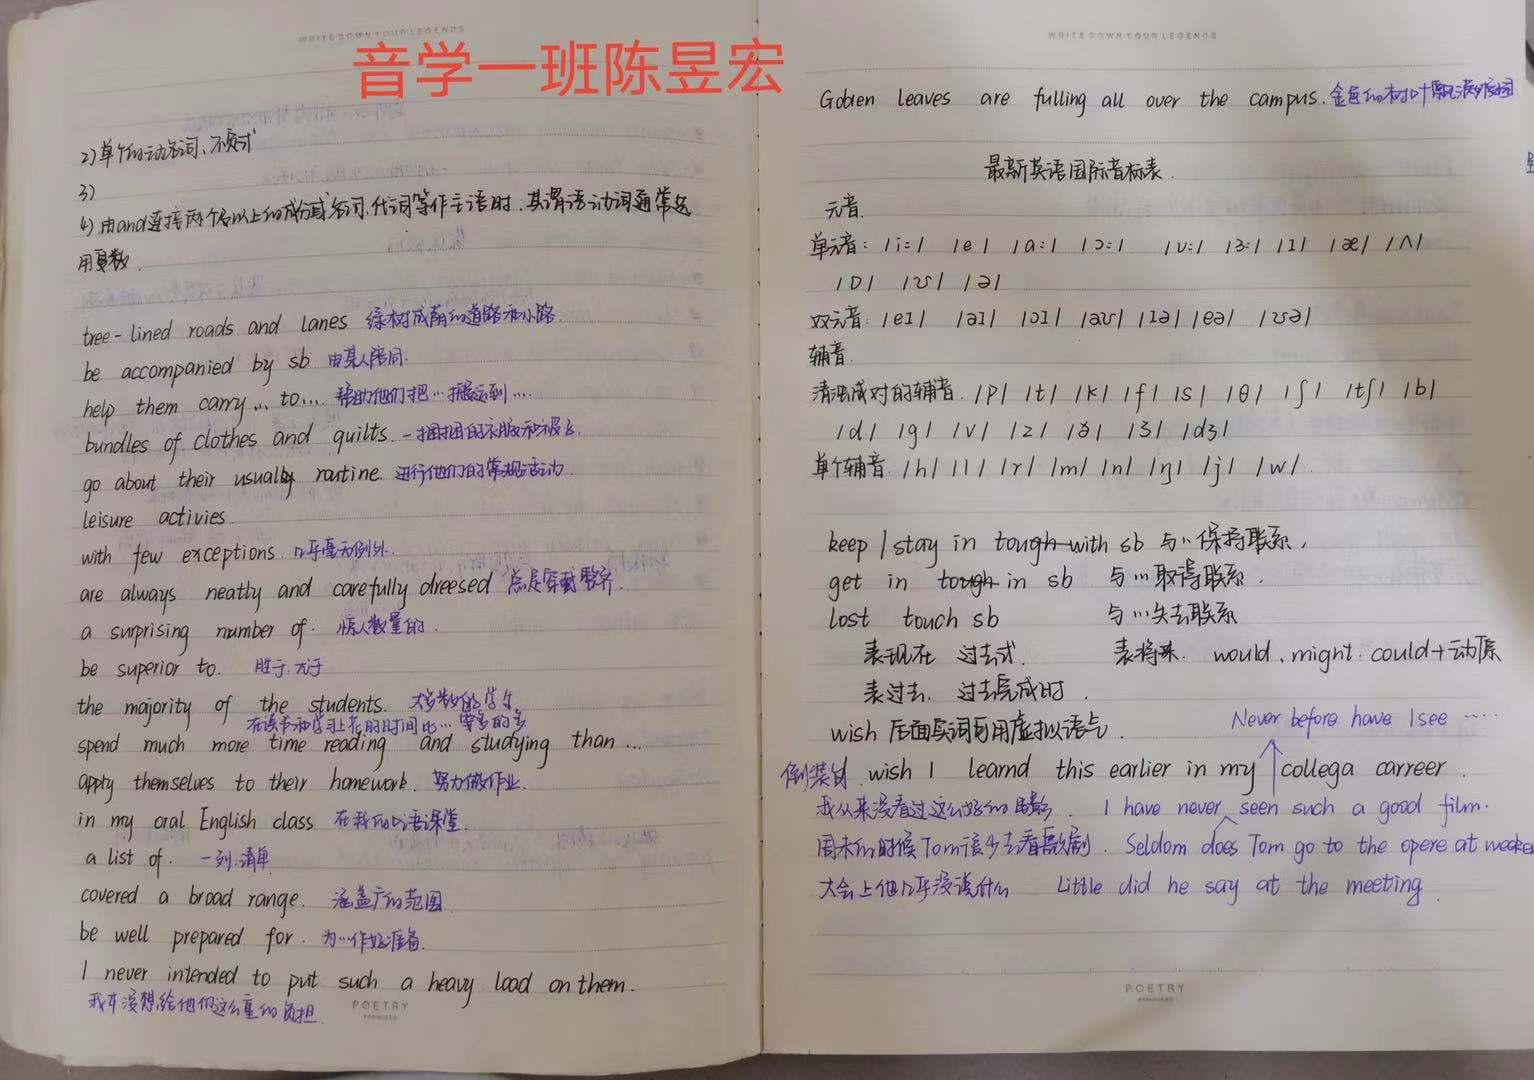 WRITE DOWN YOUR LEGENDS
音学一班陈昱宏
2)单个的动名词、不定式
3)
4)由and连接两个或以上的成份或名词、代词等作主语时,其谓语动词通常选
用复数.
tree-lined roads and lanes 绿树成荫的道路和小路.
be accompanied by sb 由某人陪同.
help them carry... to... 帮助他们把…搬运到….
bundles of clothes and quilts. 一捆捆的衣服和被子.
go about their usually routine. 进行他们的常规活动.
leisure activies.
with few exceptions. 几乎毫无例外.
are always neatly and carefully dreesed 总是穿戴整齐.
a surprising number of. 惊人数量的.
be superior to. 胜于.大于
the majority of the students. 大多数的学生.
在读书和学习上花的时间比…要多的多
spend much more time reading and studying than...
apply themselves to their homework. 努力做作业.
in my oral English class 在我的口语课堂.
a list of. 一列.清单
covered a broad range. 涵盖广的范围.
be well prepared for. 为…作好准备.
I never intended to put such a heavy load on them.
我本没想给他们这么重的负担.
POETRY
WRITE DOWN YOUR LEGENDS
Goblen leaves are fulling all over the campus. 金色的树叶飘满校园
最新英语国际音标表.
元音.
单元音: /i:/ /e/ /a:/ /ɔ:/ /u:/ /3:/ /ɪ/ /æ/ /ʌ/
/ɒ/ /ʊ/ /ə/
双元音: /eɪ/ /aɪ/ /ɔɪ/ /aʊ/ /ɪə/ /eə/ /ʊə/
辅音.
清浊成对的辅音. /p/ /t/ /k/ /f/ /s/ /θ/ /ʃ/ /tʃ/ /b/
/d/ /g/ /v/ /z/ /ð/ /ʒ/ /dʒ/
单个辅音. /h/ /l/ /r/ /m/ /n/ /ŋ/ /j/ /w/.
keep / stay in tough with sb 与…保持联系.
get in tough in sb 与…取得联系.
lost touch sb 与…失去联系
表现在 过去式. 表将来. would.might.could+动原
表过去. 过去完成时.
wish 后面宾词可用虚拟语气. Never before have I see ....
倒装句. wish I learnd this earlier in my collega carreer.
我从来没看过这么好的电影. I have never seen such a good film.
周末的时候Tom很少去看歌剧. Seldom does Tom go to the opere at weeken
大会上他几乎没说什么 Little did he say at the meeting.
POETRY